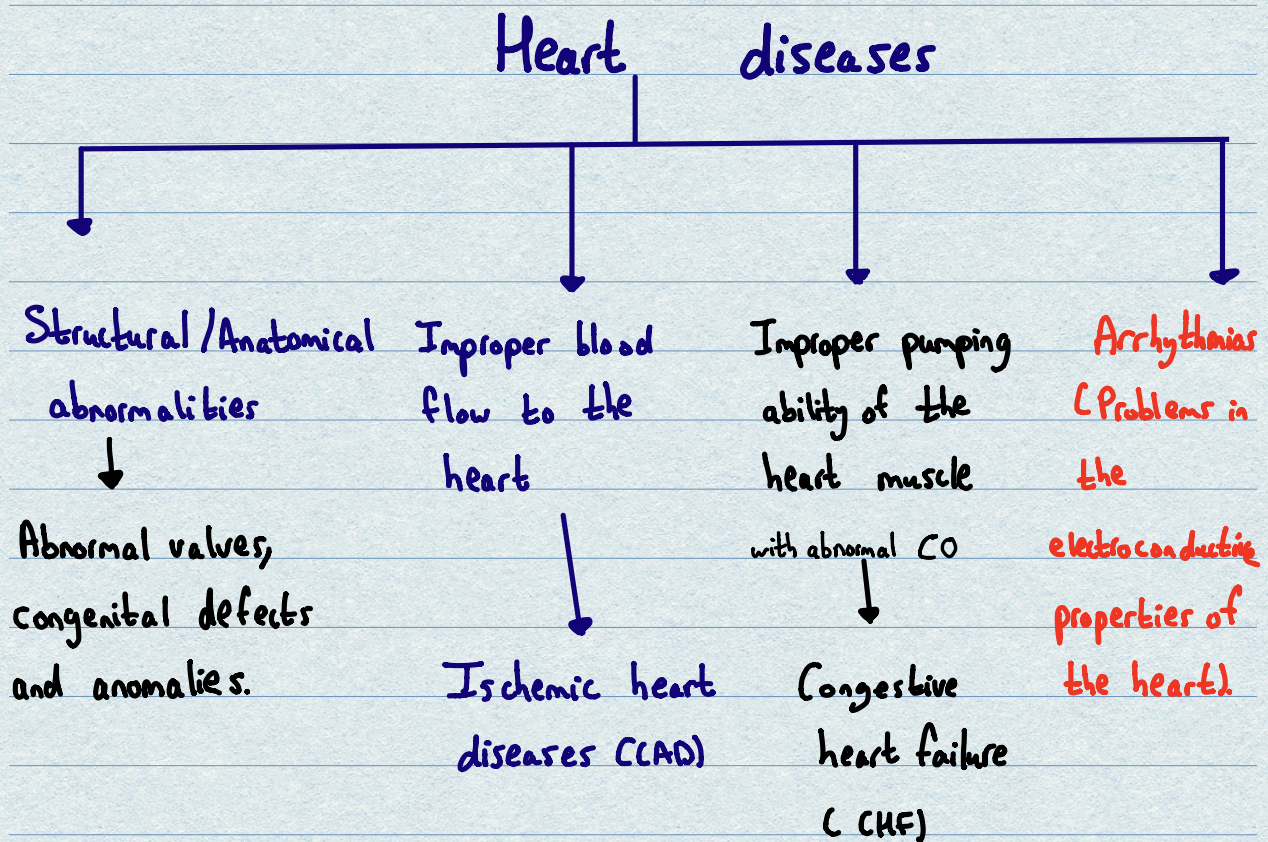 Heart diseases
Structural/Anatomical
abnormalities
Abnormal valves,
congenital defects
and anomalies.
Improper blood
flow to the
heart
Ischemic heart
diseases (CAD)
Improper pumping
ability of the
heart muscle
with abnormal CO
Congestive
heart failure
(CHF)
Arrhythmias
(Problems in
the
electroconducting
properties of
the heart).